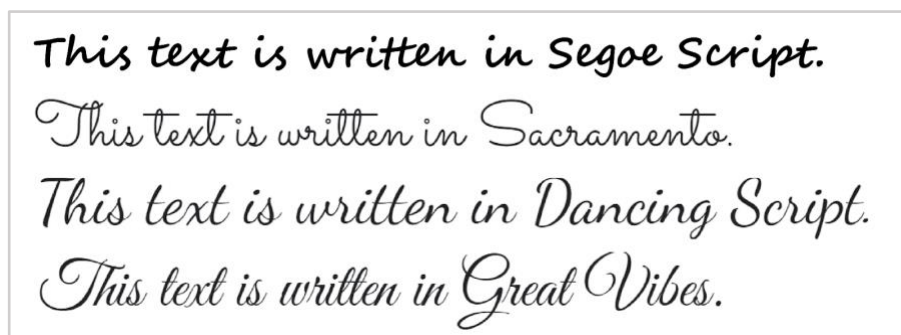 This text is written in Segoe Script.
This text is written in Sacramento.
This text is written in Dancing Script.
This text is written in Great Vibes.